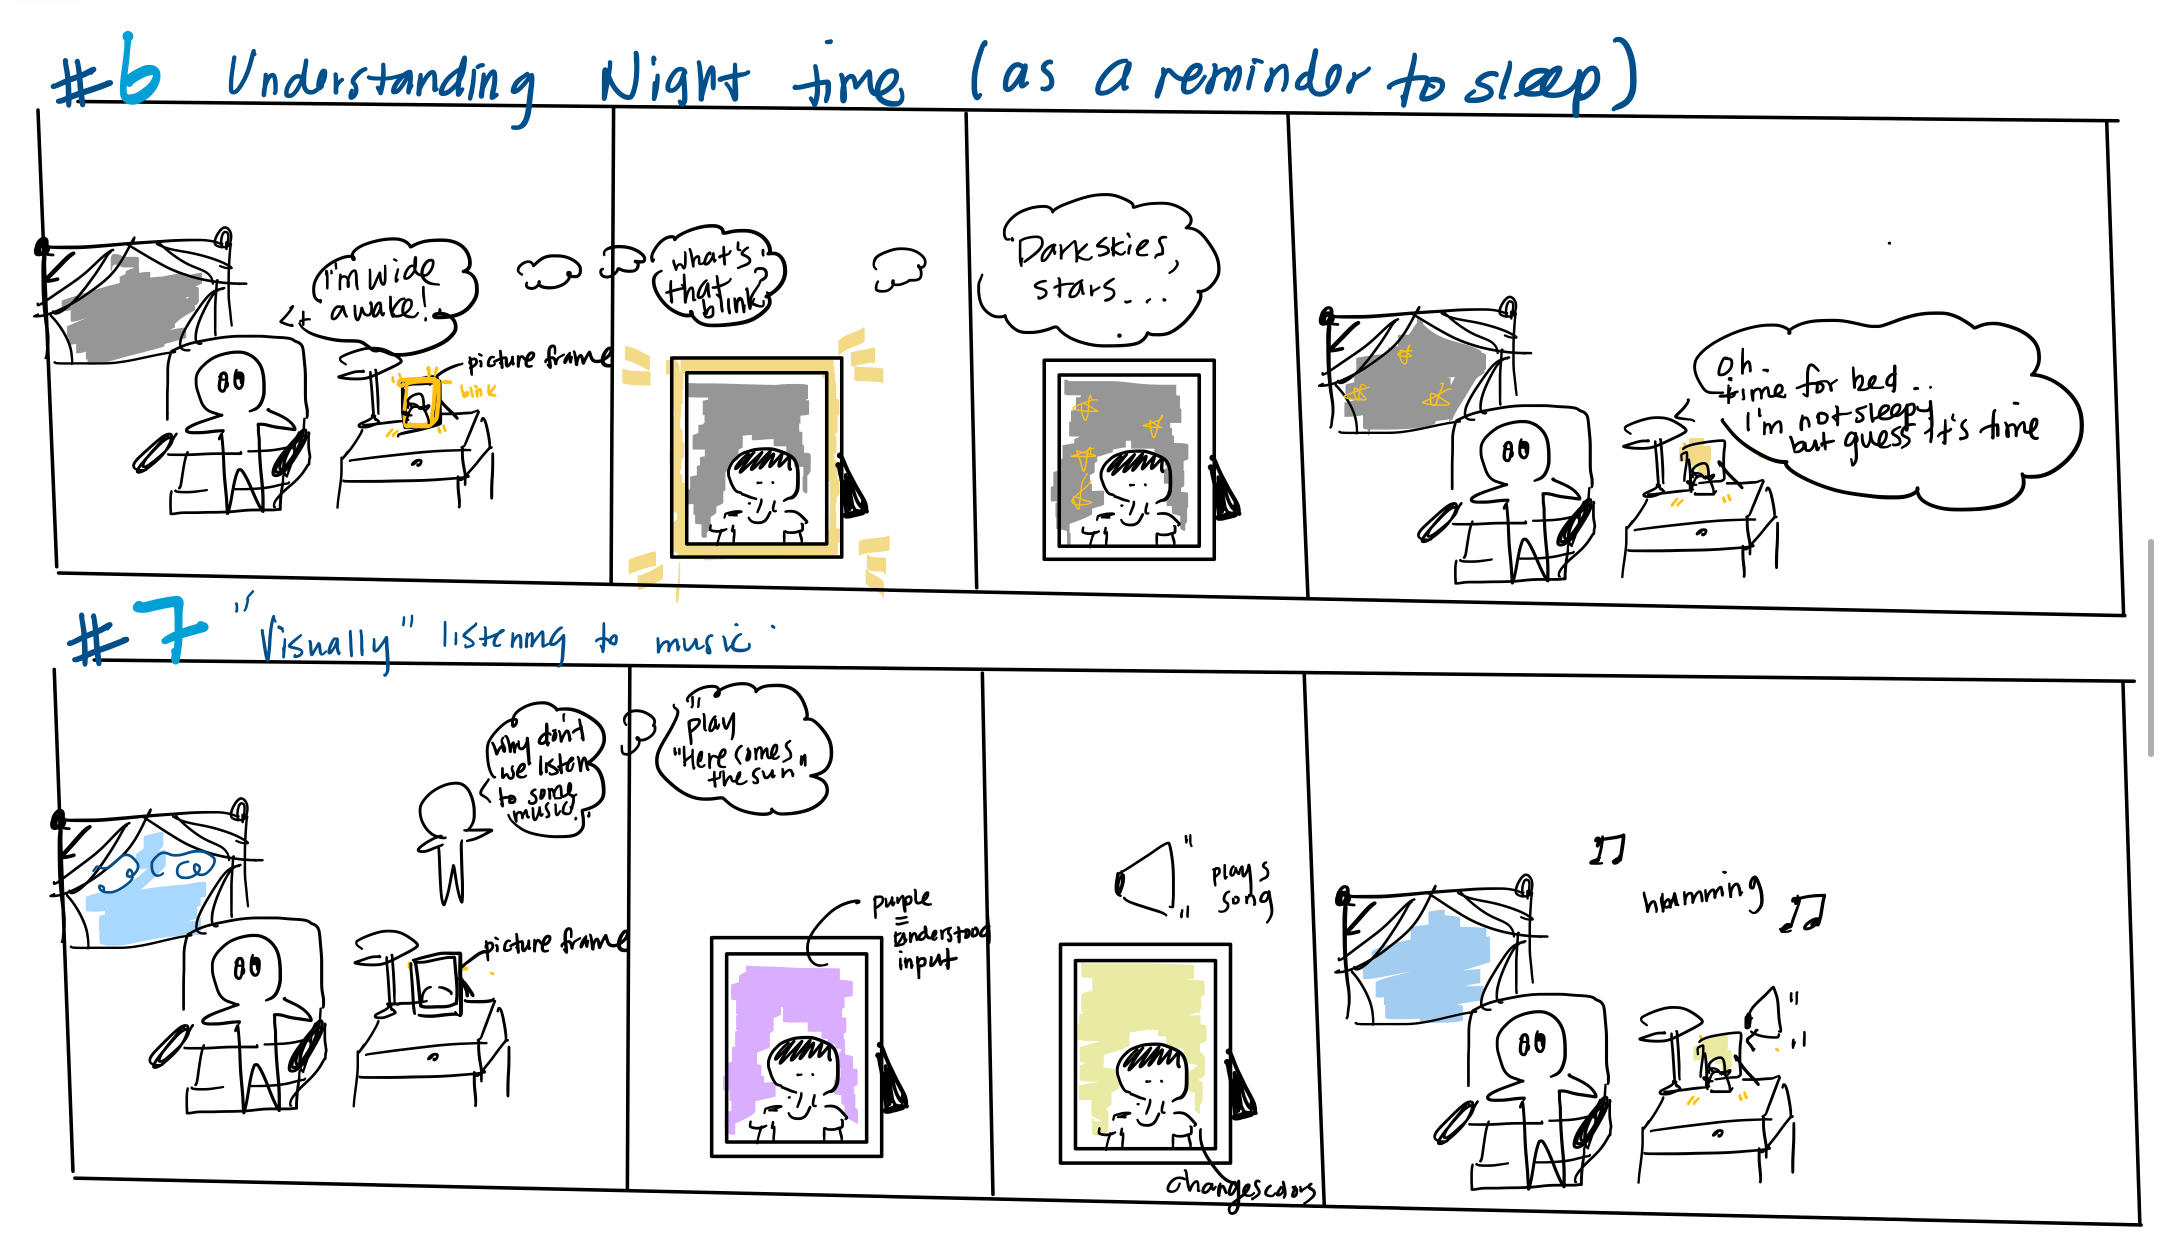 #6 Understanding Night time (as a reminder to sleep)
I'm wide
awake!
picture frame
blink
what's
that
blink?
Dark skies,
stars....
Oh.
time for bed..
I'm not sleepy
but guess it's time
#7 "Visually" listening to music
why don't
we listen
to some
music.
picture frame
"play
"Here comes
the sun"
purple
=
understood
input
plays
song
changes colors
humming